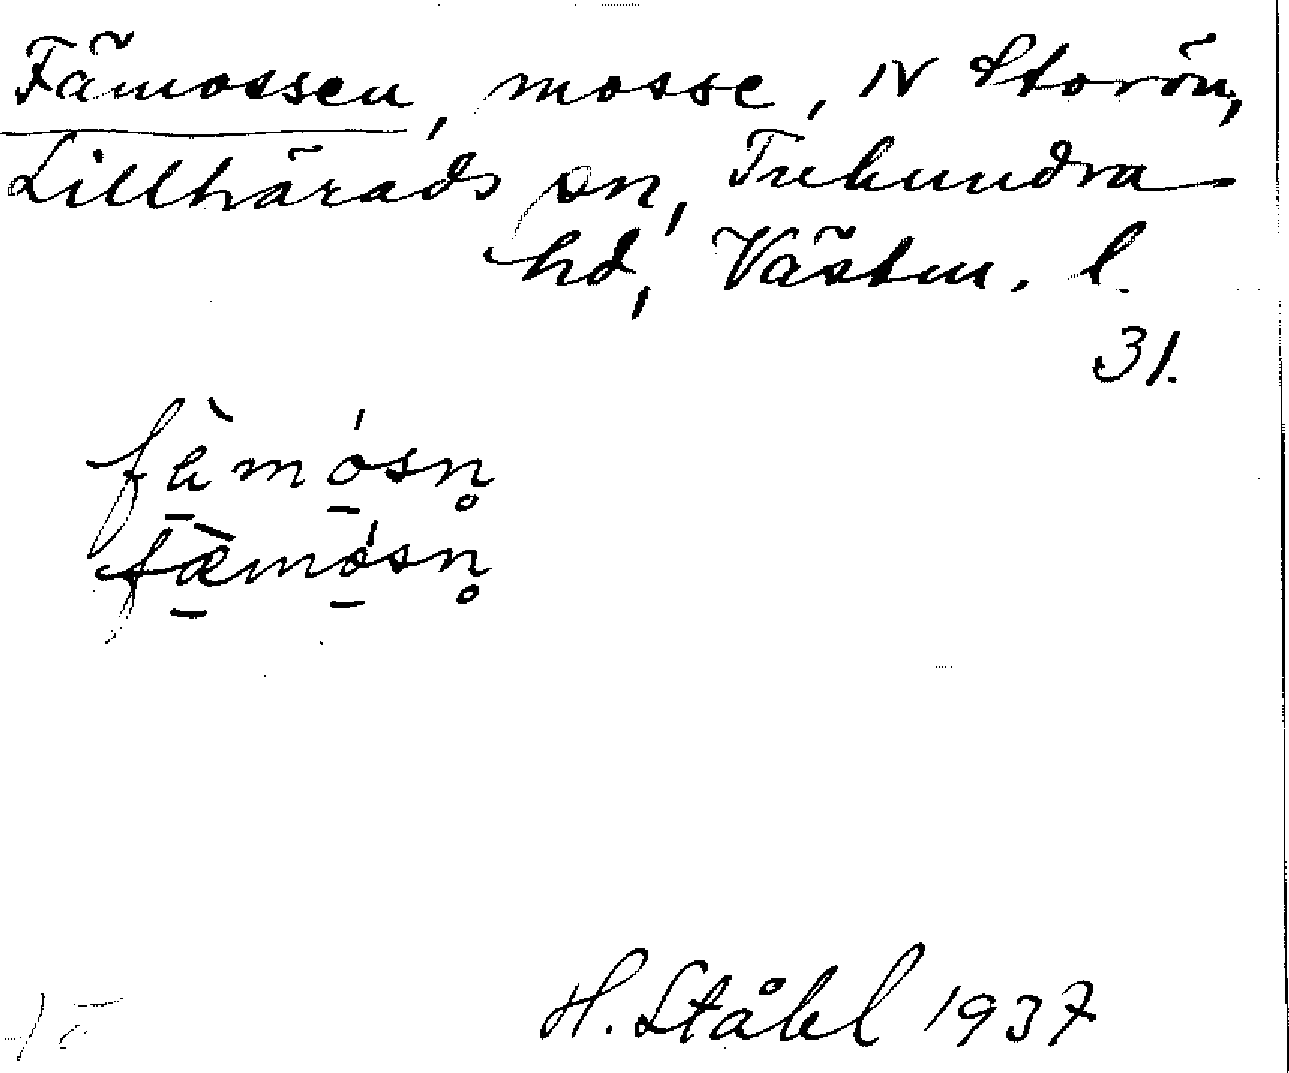 Fämossen, mosse, N Storön,
Lillhärads sn, Tuhundra
hd, Västm. l.
31.
fä̀mósn̥
fæ̀mósn̥
H. Ståhl 1937